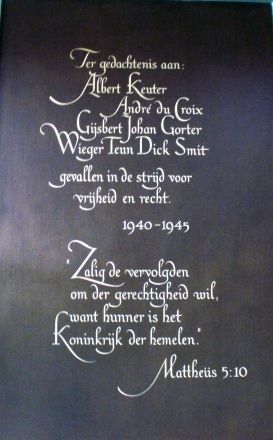 Ter gedachtenis aan:
Albert Keuter
André du Croix
Gijsbert Johan Gorter
Wieger Teun Dick Smit
gevallen in de strijd voor
vrijheid en recht.
1940-1945
"Zalig de vervolgden
om der gerechtigheid wil,
want hunner is het
Koninkrijk der hemelen."
Mattheüs 5:10